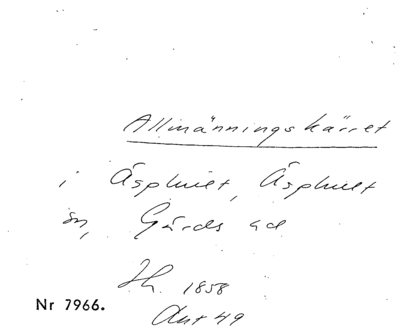 Allmänningskärret
i Äsphult, Äsphult
sn, Gärds hd
Jh. 1858
Akt 49
Nr 7966.